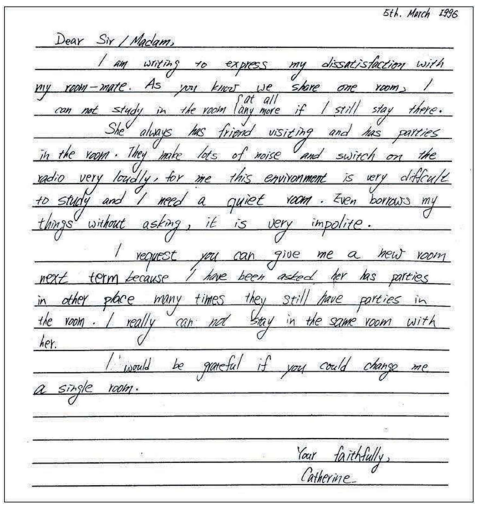 5th. March 1996
Dear Sir / Madam,
I am writing to express my dissatisfaction with
my room-mate. As you know we share one room, I
at all
can not study in the room (any more if I still stay there.
She always has friend visiting and has parties
in the room. They make lots of noise and switch on the
radio very loudly, for me this environment is very difficult
to study and I need a quiet room. Even borrows my
things without asking, it is very impolite.
I request you can give me a new room
next term because I have been asked her has parties
in other place many times they still have parties in
the room. I really can not stay in the same room with
her.
I would be grateful if you could change me
a single room.
Your faithfully,
Catherine